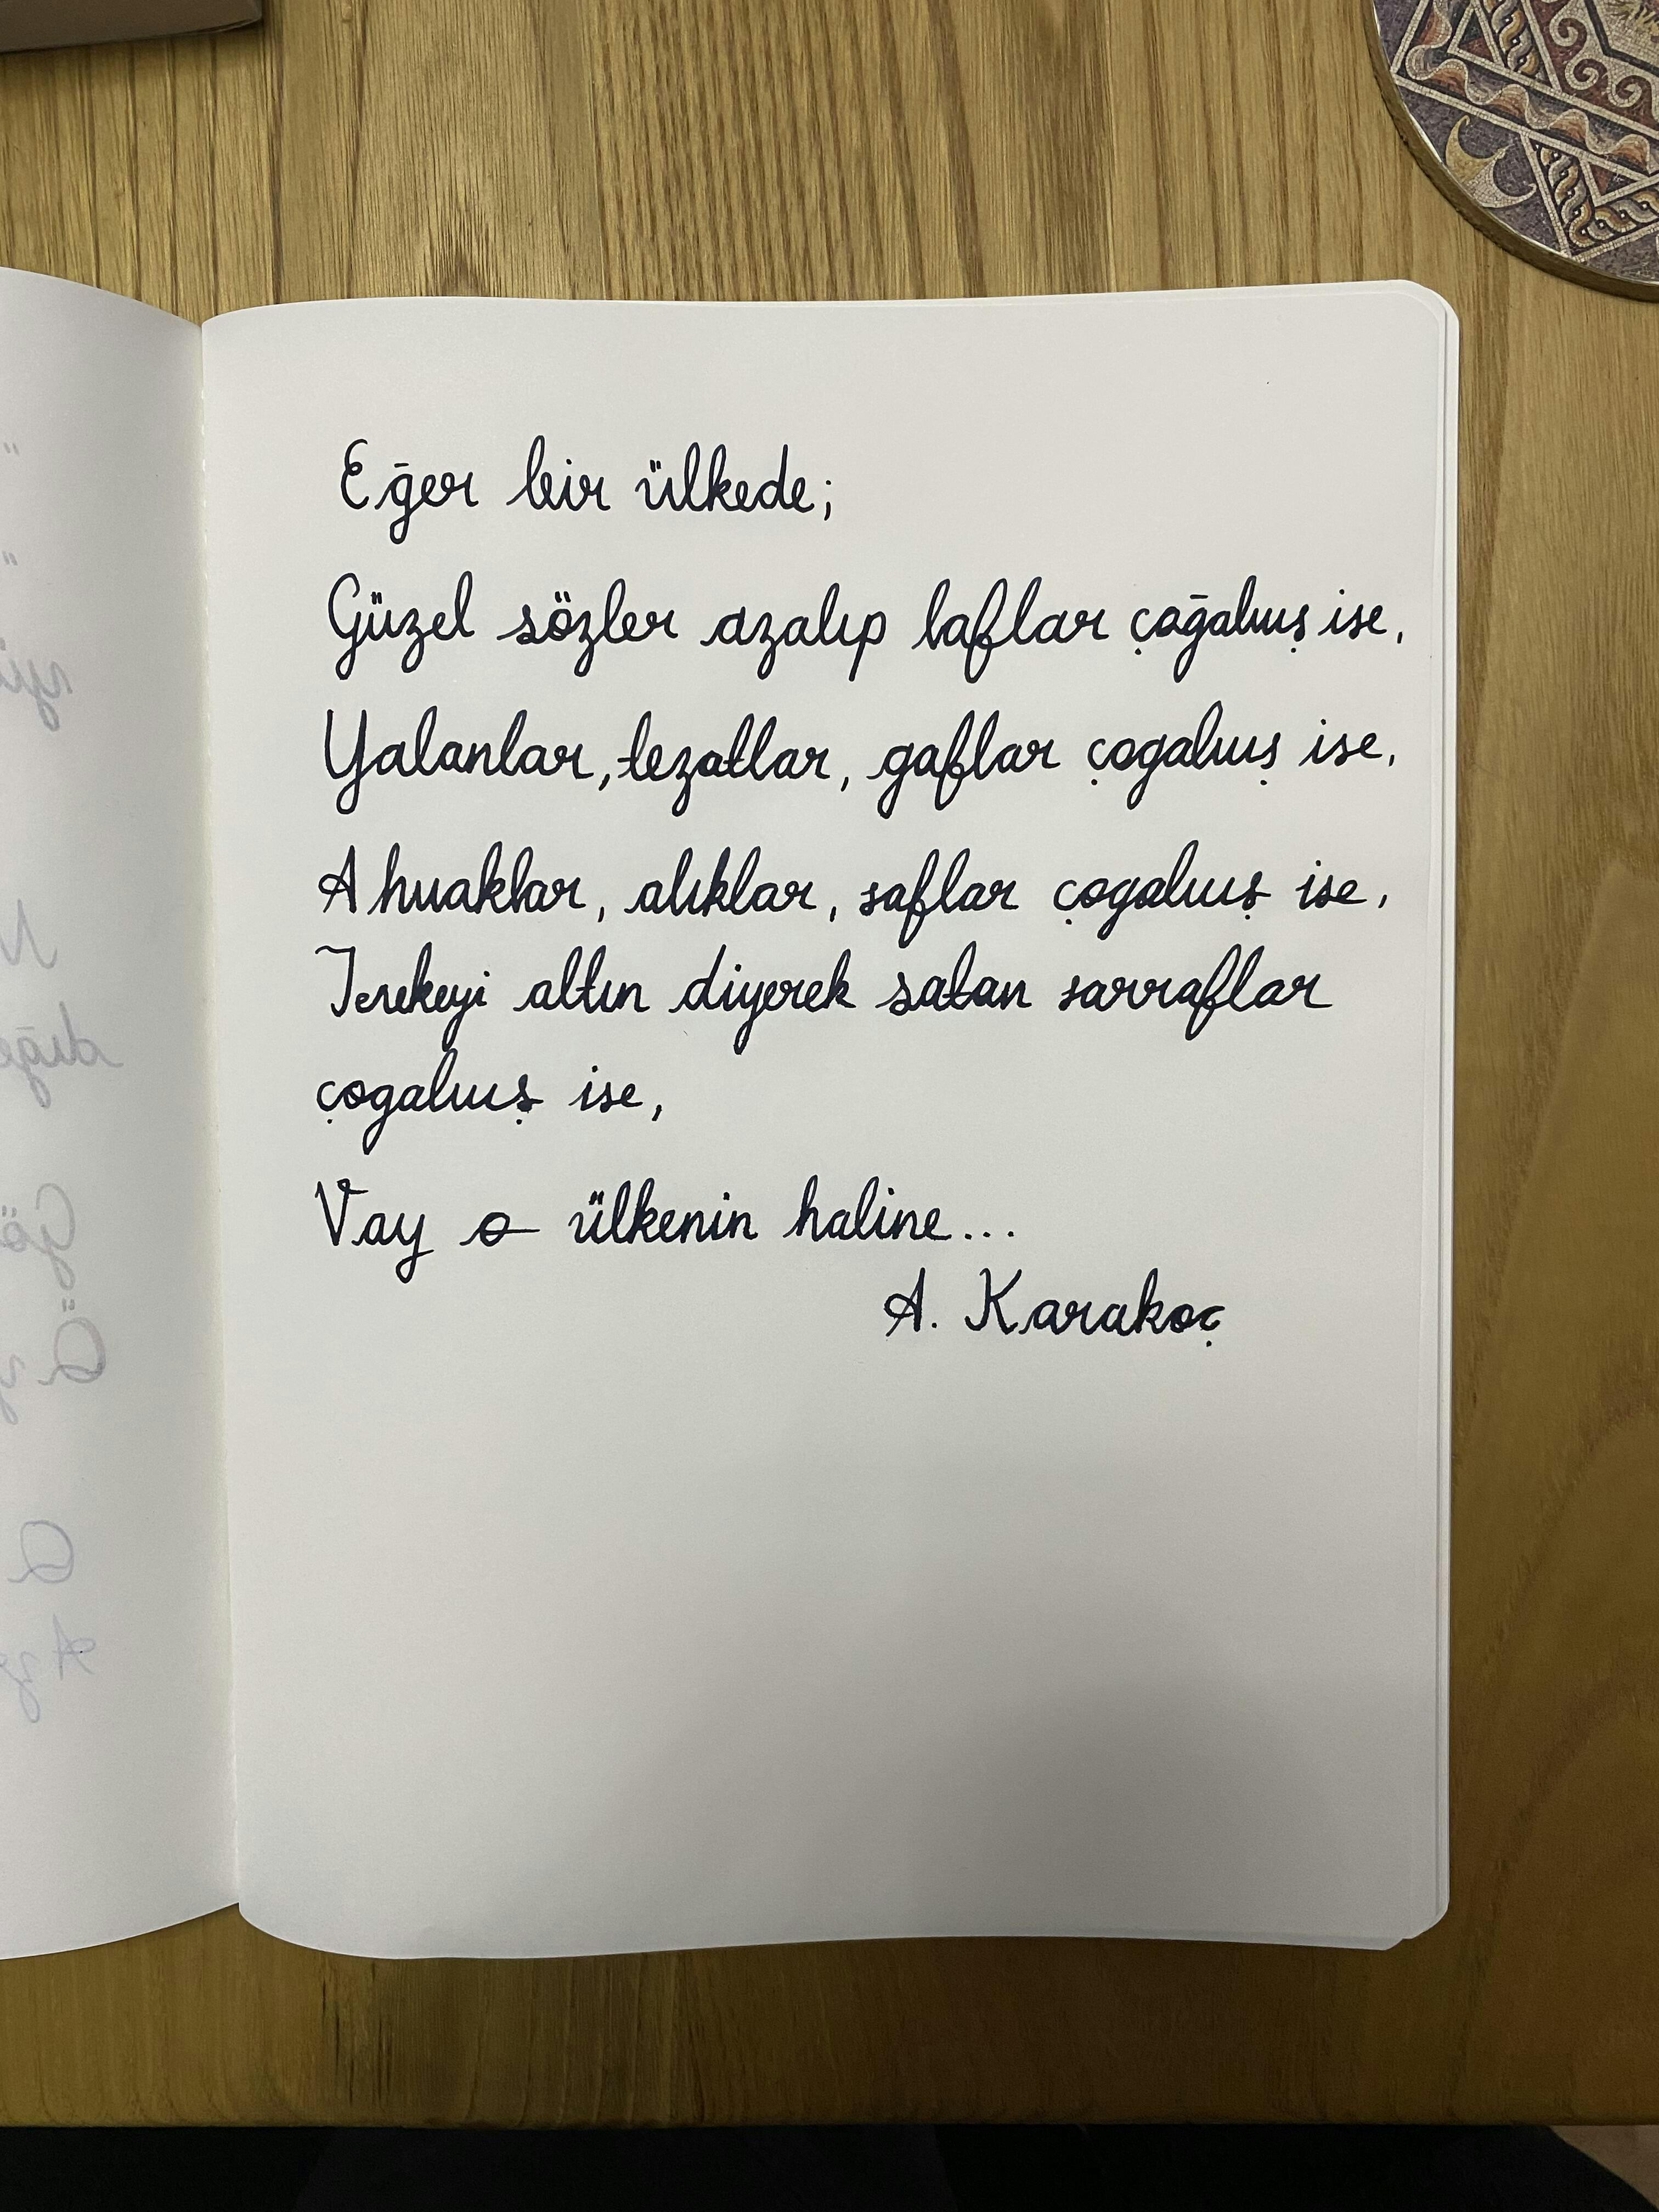 Eğer bir ülkede;
Güzel sözler azalıp laflar çoğalmış ise,
Yalanlar, tezatlar, gaflar çogalmış ise,
Ahmaklar, alıklar, saflar çogalmış ise,
Tenekeyi altın diyerek satan sarraflar
çogalmış ise,
Vay o ülkenin haline...
A. Karakoç